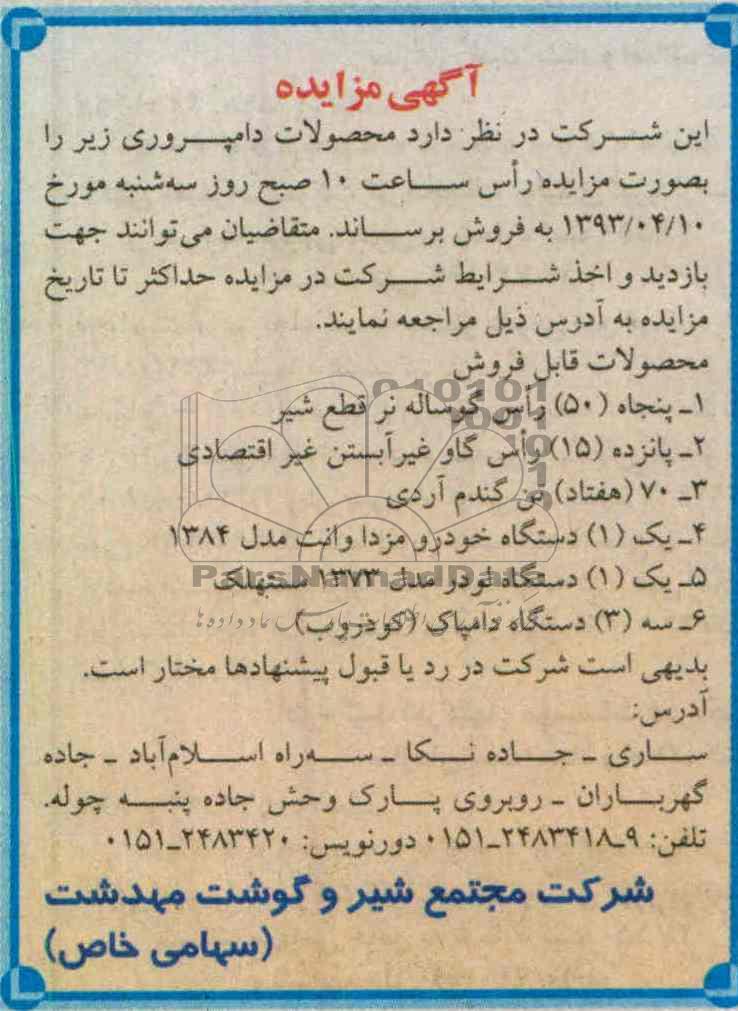 آگهی مزایده
این شرکت در نظر دارد محصولات دامپروری زیر را
بصورت مزایده رأس ساعت ۱۰ صبح روز سه‌شنبه مورخ
۱۳۹۳/۰۴/۱۰ به فروش برساند. متقاضیان می‌توانند جهت
بازدید و اخذ شرایط شرکت در مزایده حداکثر تا تاریخ
مزایده به آدرس ذیل مراجعه نمایند.
محصولات قابل فروش
۱ـ پنجاه (۵۰) رأس گوساله نر قطع شیر
۲ـ پانزده (۱۵) رأس گاو غیرآبستن غیر اقتصادی
۳ـ ۷۰ (هفتاد) تن گندم آردی
۴ـ یک (۱) دستگاه خودرو مزدا وانت مدل ۱۳۸۴
۵ـ یک (۱) دستگاه لودر مدل ۱۳۷۳ مستهلک
۶ـ سه (۳) دستگاه دامپاک (کودروب)
ParsNamadData
بدیهی است شرکت در رد یا قبول پیشنهادها مختار است.
آدرس:
ساری ـ جاده نکا ـ سه‌راه اسلام‌آباد ـ جاده
گهرباران ـ روبروی پارک وحش جاده پنبه چوله.
تلفن: ۹ـ۲۴۸۳۴۱۸ـ۰۱۵۱ دورنویس: ۲۴۸۳۴۲۰ـ۰۱۵۱
شرکت مجتمع شیر و گوشت مهدشت
(سهامی خاص)